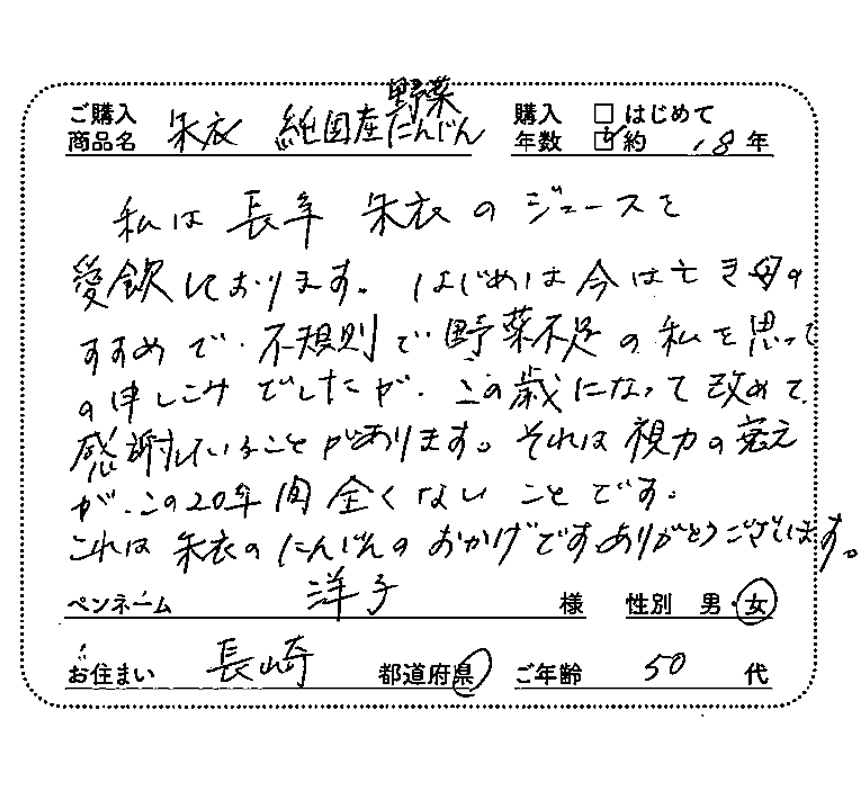 ご購入商品名 朱衣 純国産野菜にんじん 購入年数 □はじめて ☑約 18年
私は長年 朱衣のジュースを
愛飲しております。はじめは今は亡き母の
すすめで、不規則で野菜不足の私を思って
の申しこみでしたが、この歳になって改めて、
感謝していることがあります。それは視力の衰え
が、この20年間全くないことです。
これは朱衣のにんじんのおかげです。ありがとうございます。
ペンネーム 洋子 様 性別 男・女
お住まい 長崎 都道府県 ご年齢 50代